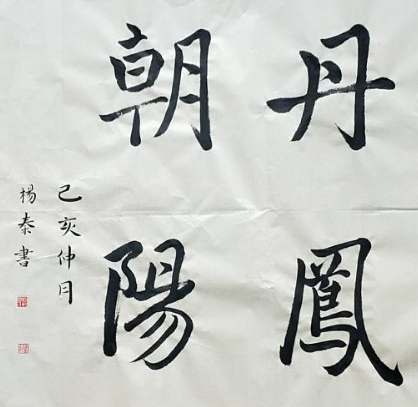 丹鳳
朝陽
己亥仲月
楊秦書